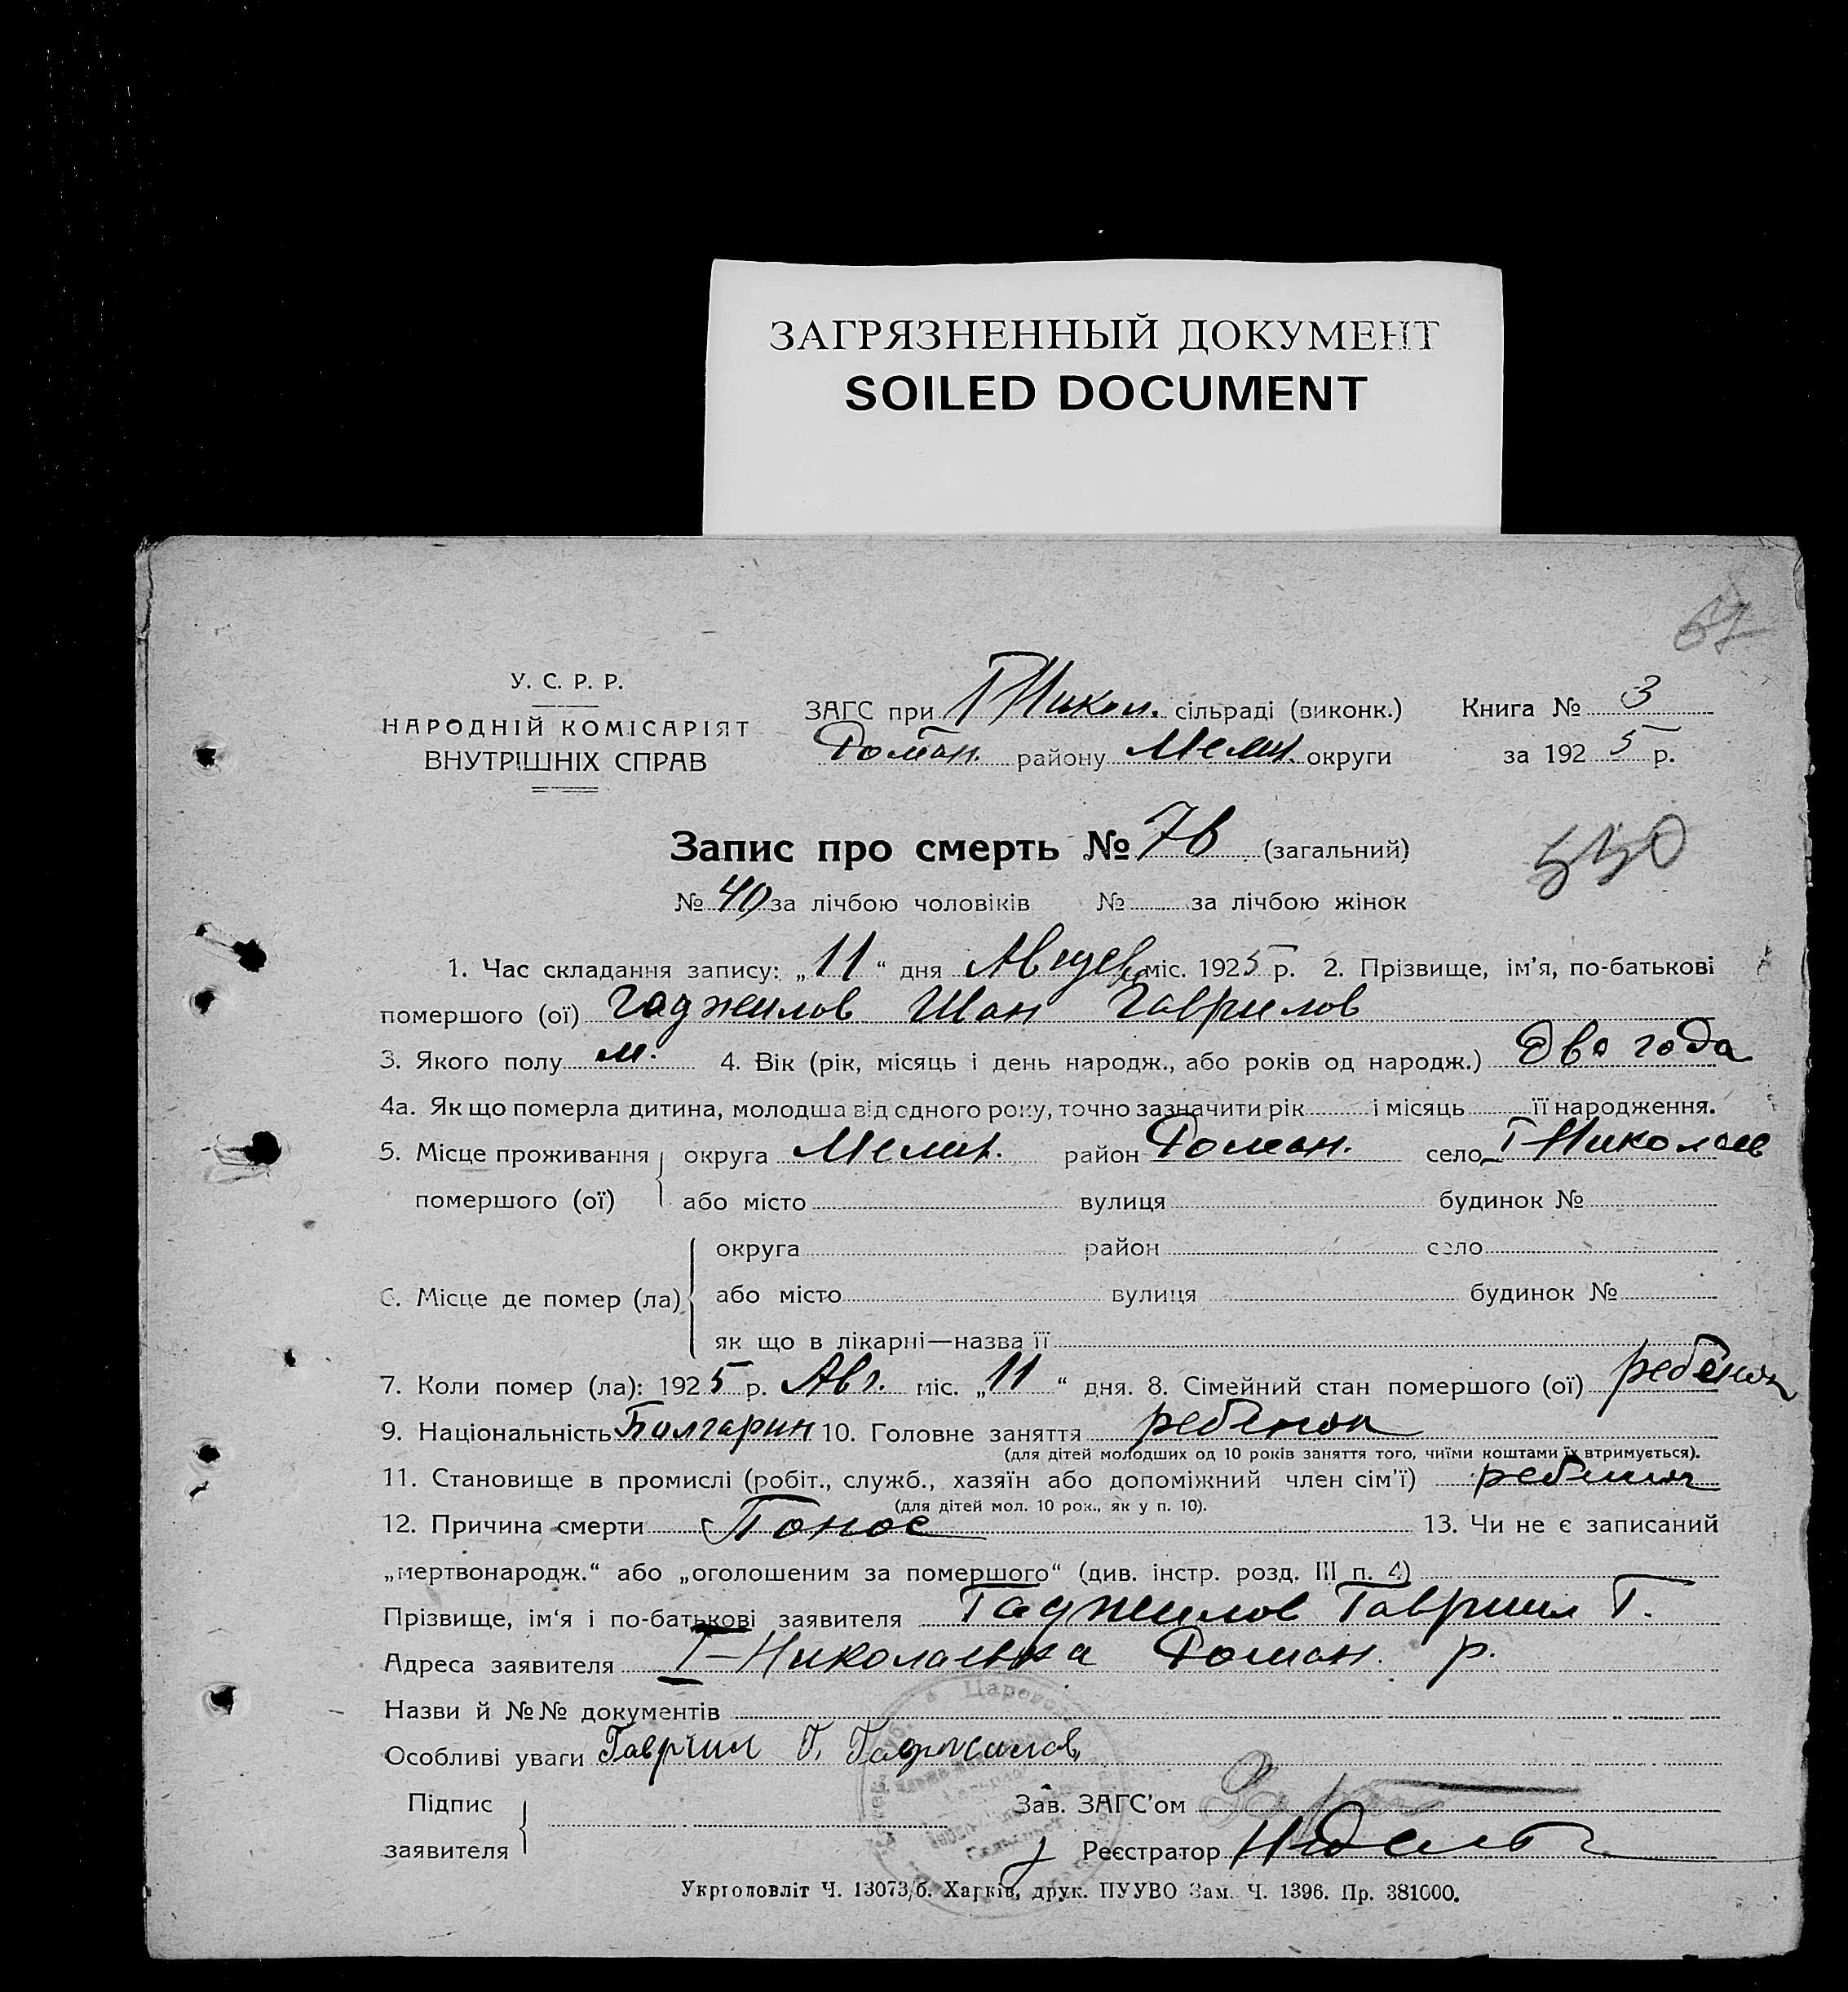 ЗАГРЯЗНЕННЫЙ ДОКУМЕНТ
SOILED DOCUMENT
67
У. С. Р. Р.
НАРОДНІЙ КОМІСАРІЯТ
ВНУТРІШНІХ СПРАВ
ЗАГС при I Никол. сільраді (виконк.)
Роман. району Мелит. округи
Книга № 3
за 1925 р.
Запис про смерть № 76 (загальний)
550
№ 40 за лічбою чоловіків № за лічбою жінок
1. Час складання запису: „11“ дня міс. 1925 р. 2. Прізвище, ім'я, по-батькові
помершого (ої) Гаджилов Иван Гаврилов
3. Якого полу м. 4. Вік (рік, місяць і день народж., або років од народж.) Два года
4а. Як що померла дитина, молодша від одного року, точно зазначити рік і місяць її народження.
5. Місце проживання округа Мелит. район Роман. село I Николаев
помершого (ої) або місто вулиця будинок №
округа район село
6. Місце де помер (ла) або місто вулиця будинок №
як що в лікарні—назва її
7. Коли помер (ла): 1925 р. Авг. міс. „11“ дня. 8. Сімейний стан помершого (ої) ребенок
9. Національність Болгарин 10. Головне заняття ребенок
(для дітей молодших од 10 років заняття того, чиїми коштами їх втримується).
11. Становище в промислі (робіт., служб., хазяїн або допоміжний член сім'ї) ребенок
(для дітей мол. 10 рок., як у п. 10).
12. Причина смерти Понос 13. Чи не є записаний
„мертвонародж.“ або „оголошеним за помершого“ (див. інстр. розд. III п. 4)
Прізвище, ім'я і по-батькові заявителя Гаджилов Гавриил Г.
Адреса заявителя I-Николаевка Роман. р.
Назви й №№ документів
Особливі уваги Гавриил Г. Гаджилов
Підпис
заявителя
Зав. ЗАГС'ом
Реєстратор
Укрголовліт Ч. 13073/б. Харків, друк. ПУУВО Зам. Ч. 1396. Пр. 381000.